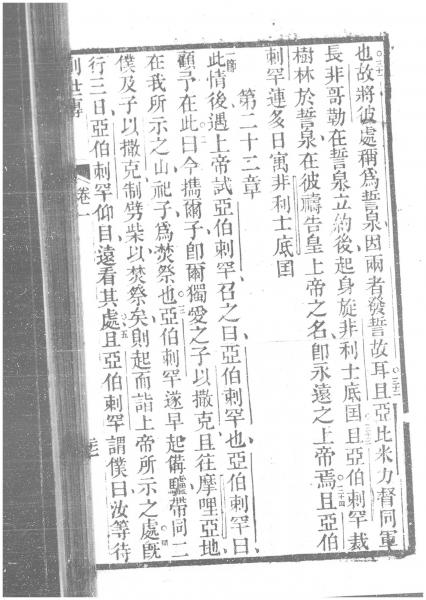 也故將彼處稱爲誓泉因兩者發誓故耳且亞比米力督同軍
長非哥勒在誓泉立約後起身旋非利士底囯且亞伯剌罕裁
樹林於誓泉在彼禱告皇上帝之名卽永遠之上帝焉且亞伯
剌罕連多日寓非利士底囯
第二十二章
此情後遇上帝試亞伯剌罕召之曰亞伯剌罕也亞伯剌罕曰
顧予在此曰今攜爾子卽爾獨愛之子以撒克且往摩哩亞地
在我所示之山祀子爲焚祭也亞伯剌罕遂早起備驢帶同二
僕及子以撒克制劈柴以焚祭矣則起而詣上帝所示之處旣
行三日亞伯剌罕仰目遠看其處且亞伯剌罕謂僕曰汝等待
創世傳
卷一